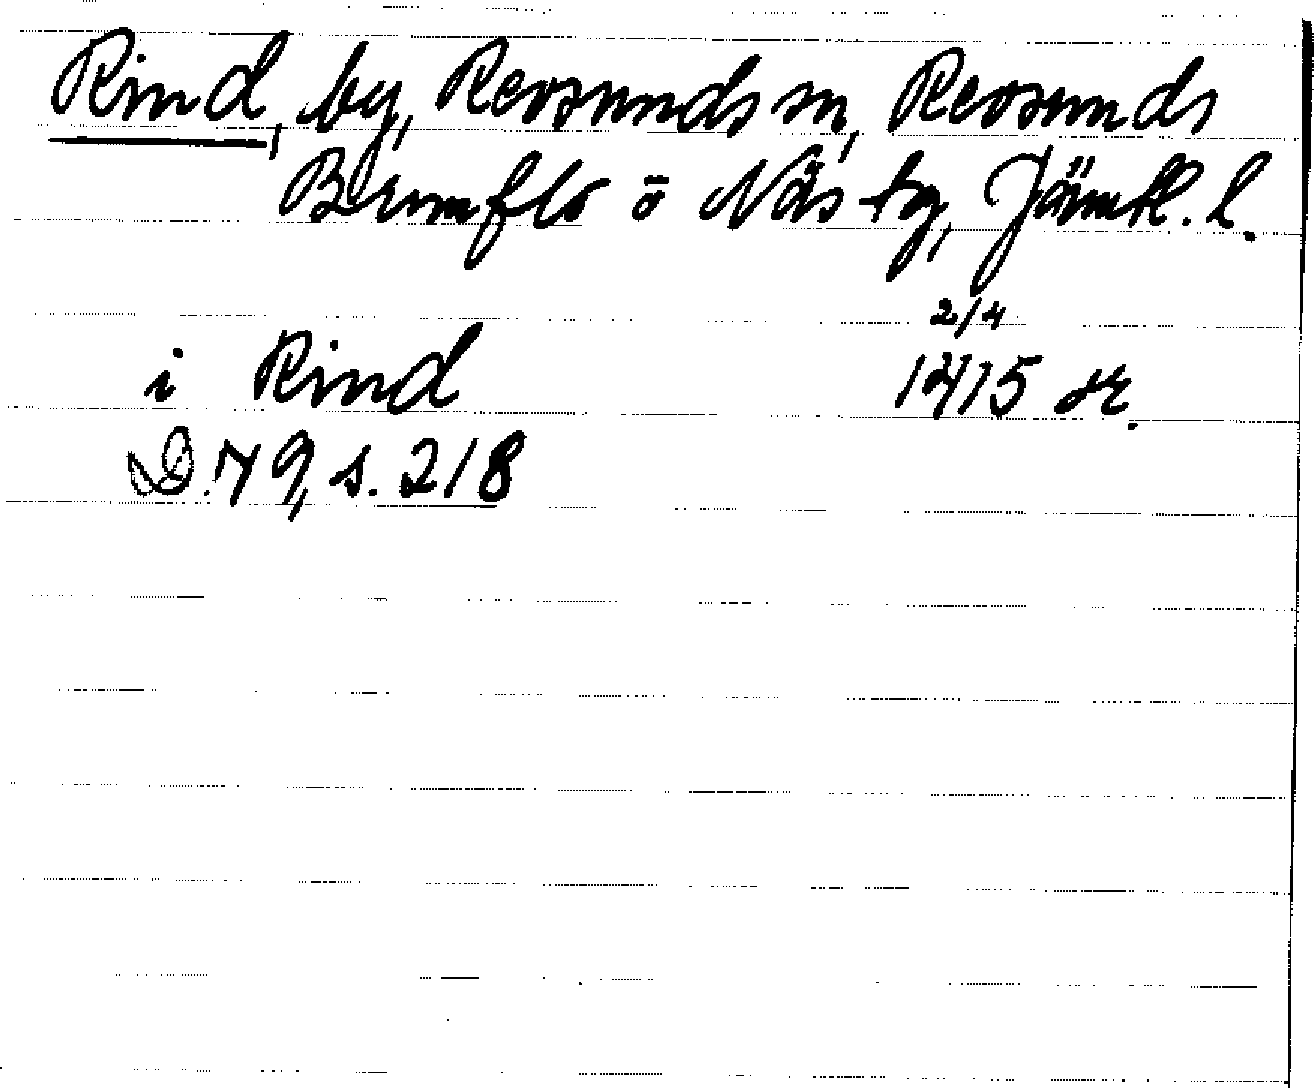 Rind, by, Revsunds sn, Revsunds
Brunflo o Näs tg, Jämtl. l.
2/4
i Rind 1415 or.
D. 79, s. 218